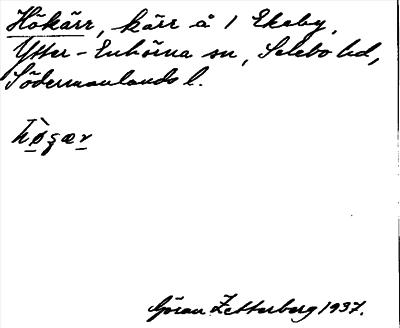 Hökärr, kärr å 1 Ekeby,
Ytter-Enhörna sn, Selebo hd,
Södermanlands l.
Göran Zetterberg 1937.